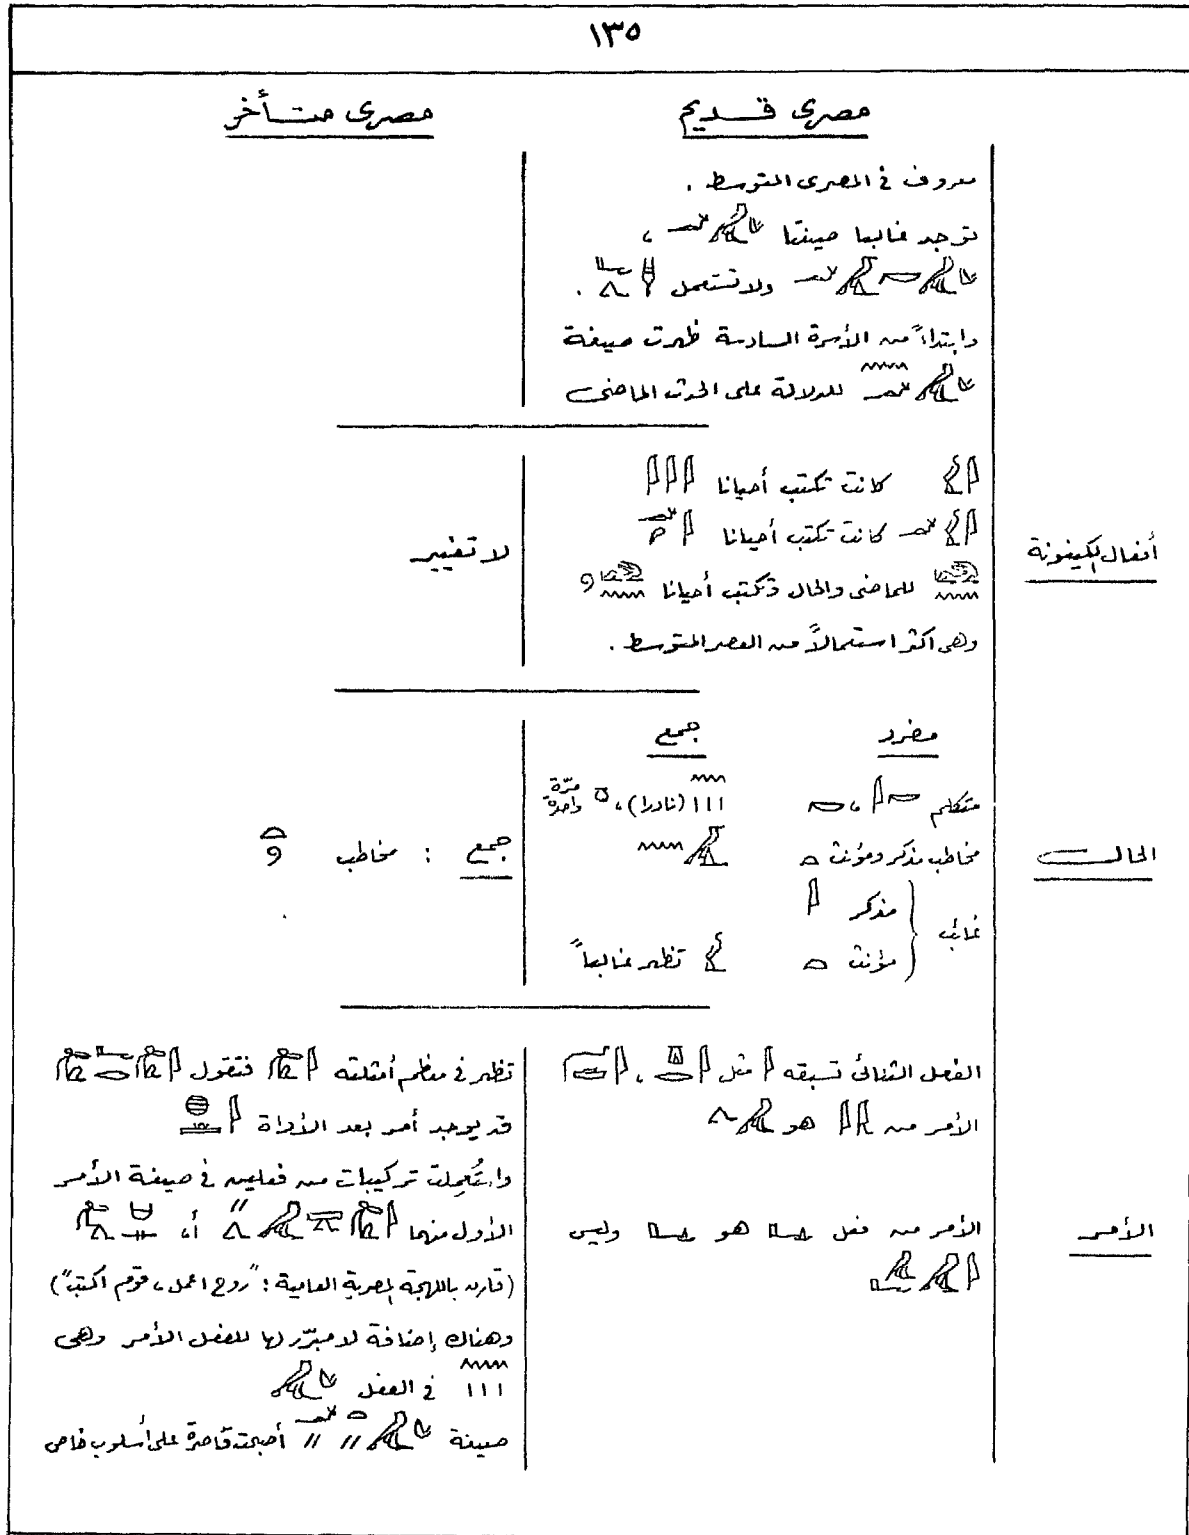 ١٣٥
مصرى قديم
مصرى متأخر
معروف فى المصرى المتوسط .
توجد غالبا صيغتا ،
ولا تستعمل .
وابتداءً من الأسرة السادسة ظهرت صيغة
للدلالة على الحدث الماضى
أفعال الكينونة
كانت تكتب أحيانا
كانت تكتب أحيانا
للماضى والحال وتكتب أحيانا
وهى أكثر استعمالاً من العصر المتوسط .
لا تغيير
الحالت
مفرد
جمع
متكلم ، (نادرا) ، مرّة واحدة
مخاطب مذكر ومؤنث
غائب
مذكر
مؤنث تظهر غالباً
جمع : مخاطب
الأمر
الفعل الثنائى تسبقه مثل ،
الأمر من هو
الأمر من فعل هو وليس
تظهر فى معظم أمثلته فتقول
قد يوجد أمر بعد الأداة
واستُعمِلت تركيبات من فعلين فى صيغة الأمر
الأول منهما أ،
(قارن باللهجة المصرية العامية : "روح اعمل ، قوم اكتب")
وهناك إضافة لا مبرّر لها للفعل الأمر وهى
فى الفعل
صيغة أصبحت قاصرة على أسلوب خاص